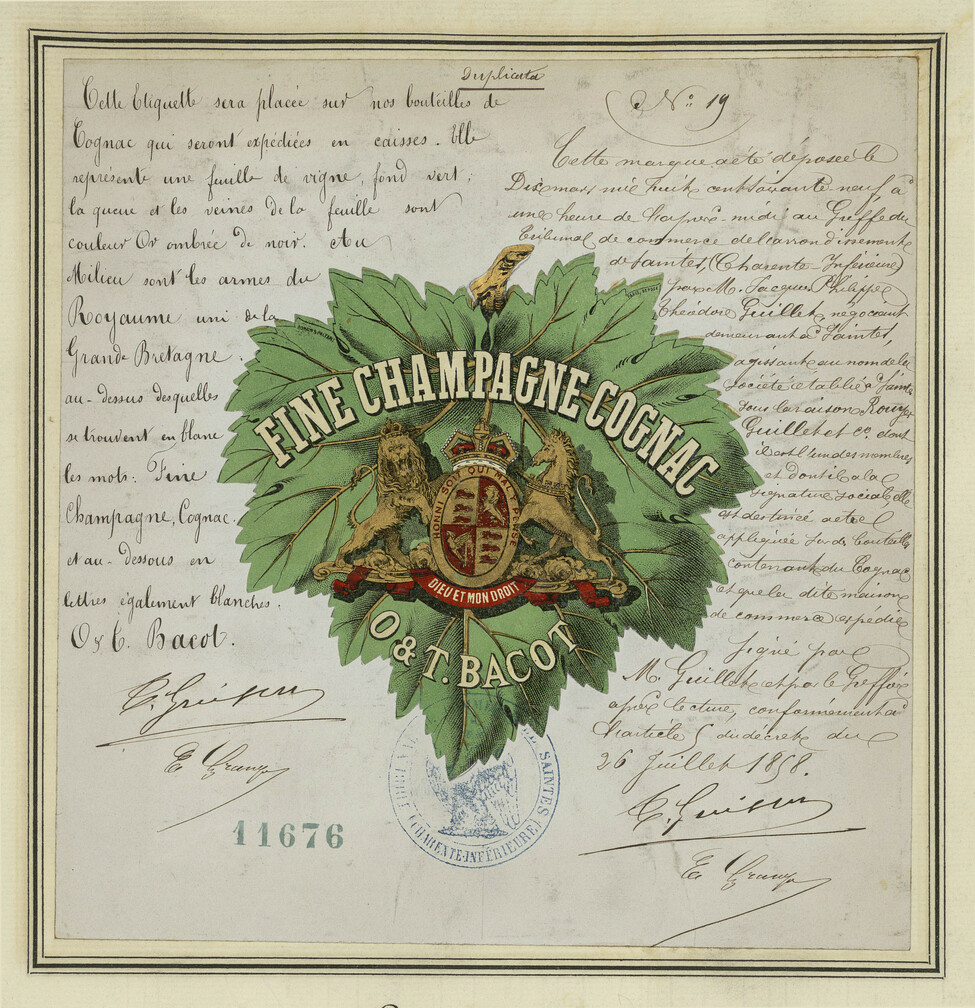 Duplicata
Cette Etiquette sera placée sur nos bouteilles de
Cognac qui seront expédiées en caisses. Elle
représente une feuille de vigne, fond vert;
la queue et les veines de la feuille sont
couleur Or ombrée de noir. Au
Milieu sont les armes du
Royaume uni de la
Grande Bretagne
au-dessus desquelles
se trouvent en blanc
les mots: Fine
Champagne, Cognac.
et au-dessous en
lettres également blanches.
O & T. Bacot.
11676
FINE CHAMPAGNE COGNAC
HONNI SOIT QUI MAL Y PENSE
DIEU ET MON DROIT
O & T. BACOT
TRIBUNAL DE SAINTES
(CHARENTE-INFÉRIEURE)
N.º 19
Cette marque a été déposée le
Dix mars mil huit cent soixante-neuf à
une heure de l'après-midi au Greffe du
Tribunal de commerce de l'arrondissement
de Saintes, (Charente Inférieure)
par M. Jacques Philippe
Théodore Guillet, négociant
demeurant à Saintes,
agissant au nom de la
Société établie à Saintes
sous la raison Rouyer
Guillet et Cº, dont
il est l'un des membres
et dont il a la
signature sociale. Elle
est destinée à être
appliquée sur des bouteilles
contenant du Cognac
et que la dite maison
de commerce expédie
Signé par
M. Guillet et par le Greffier
après lecture, conformément à
l'article 5 du décret du
26 Juillet 1858.